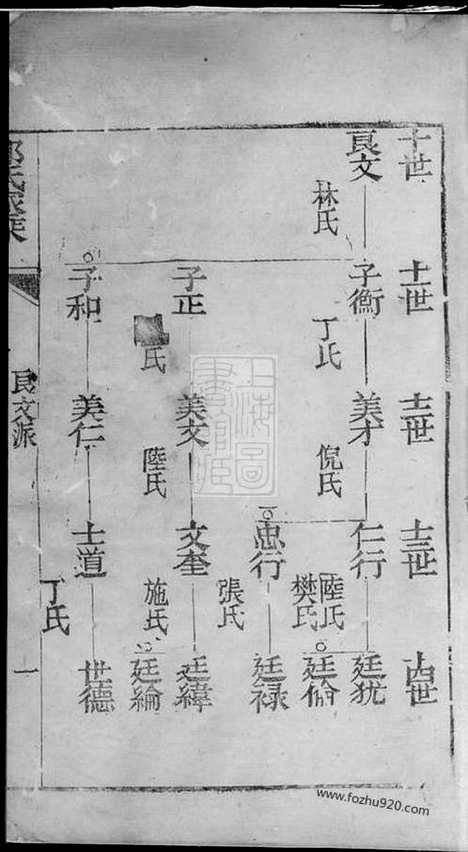 十世
十一世
十二世
十三世
十四世
良文
子衡
美才
仁行
廷猶
林氏
丁氏
倪氏
陸氏
樊氏
廷倫
忠行
廷祿
張氏
子正
美文
文奎
廷緯
氏
陸氏
施氏
廷綸
子和
美仁
士道
世德
丁氏
良文派
一
上海圖書館藏
www.fozhu920.com